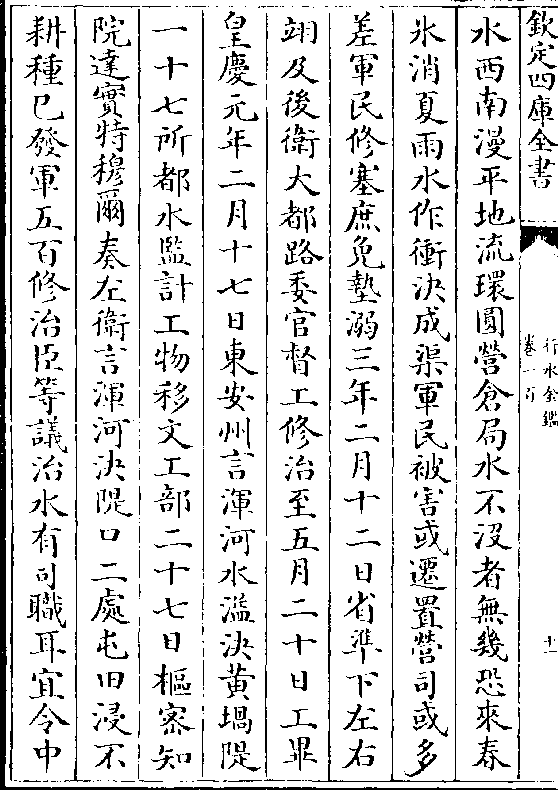 欽定四庫全書
行水金鑑
卷一百
十一
水西南漫平地流環圓營倉局水不沒者無幾恐來春
氷消夏雨水作衝決成渠軍民被害或遷置營司或多
差軍民修塞庶免墊溺三年二月十二日省準下左右
翊及後衛大都路委官督工修治至五月二十日工畢
皇慶元年二月十七日東安州言渾河水溢決黃堝隄
一十七所都水監計工物移文工部二十七日樞密知
院達實特穆爾奏左衛言渾河決隄口二處屯田浸不
耕種已發軍五百修治臣等議治水有司職耳宜令中